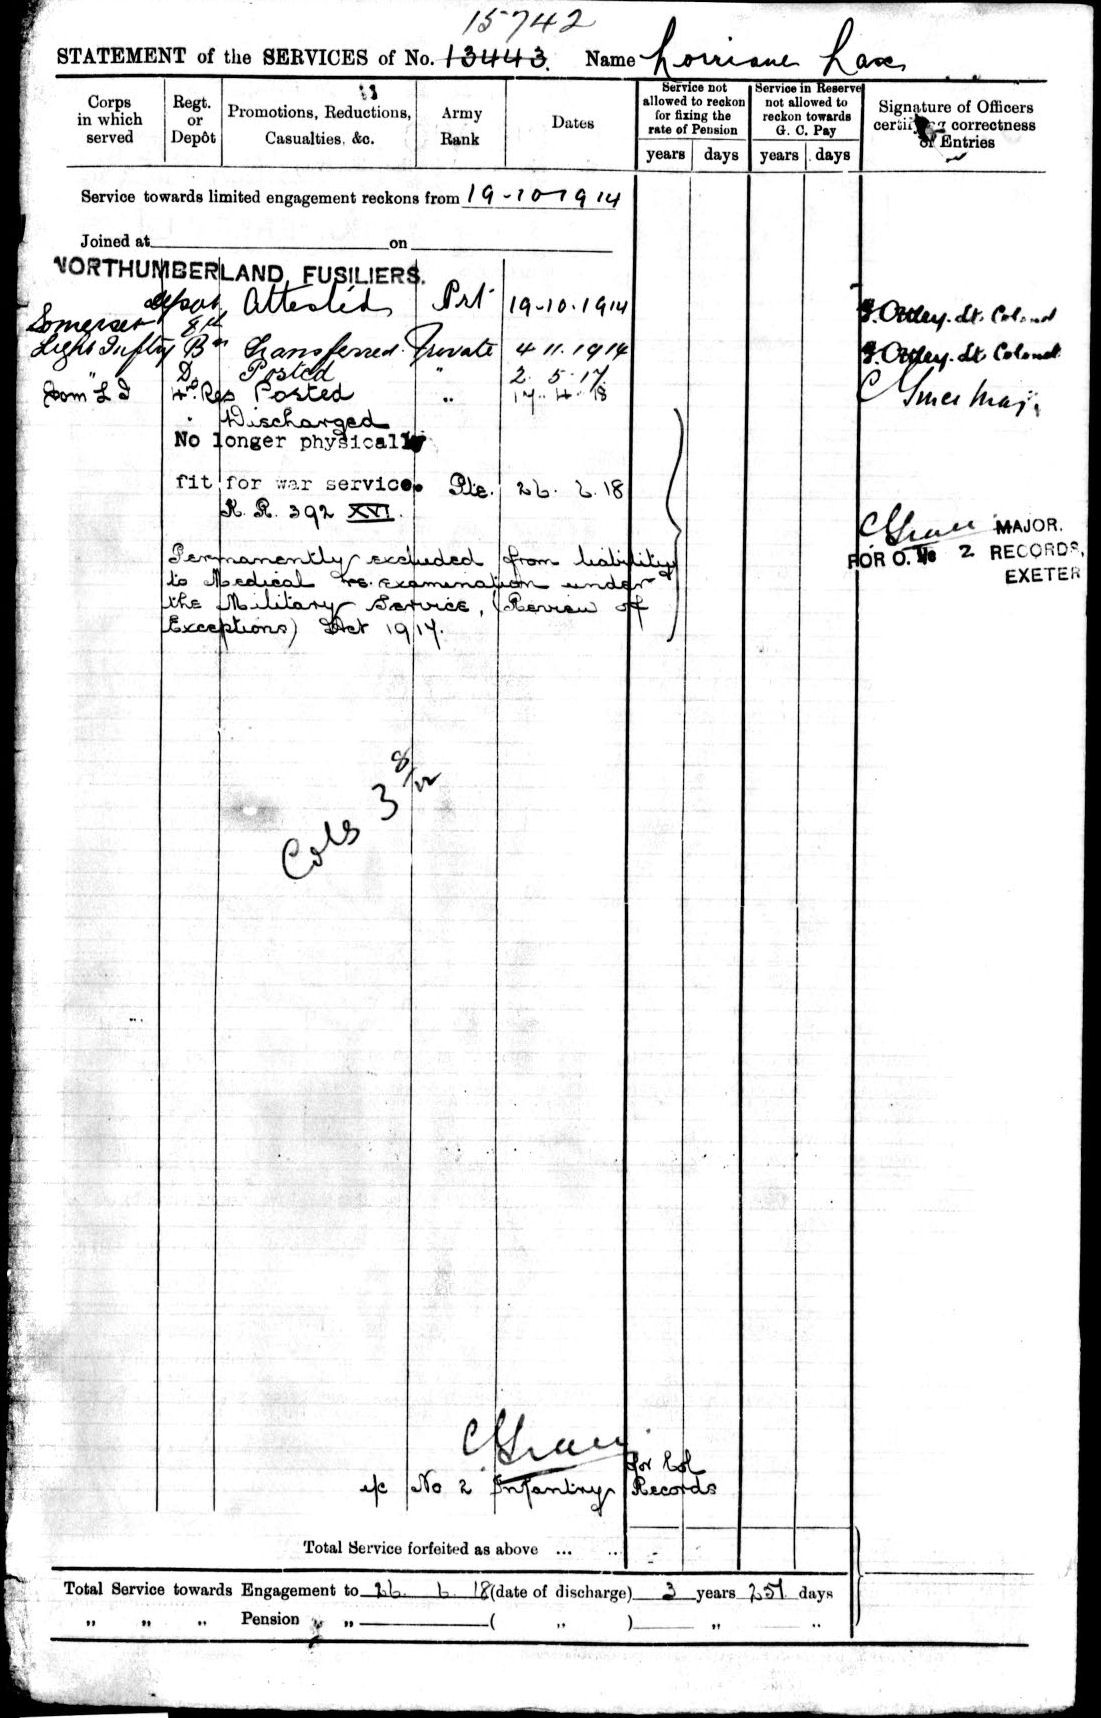 15742
STATEMENT of the SERVICES of No. 13443. Name Lorriane
Corps in which served
Regt. or Depôt
Promotions, Reductions, Casualties, &c.
Army Rank
Dates
Service not allowed to reckon for fixing the rate of Pension
years days
Service in Reserve not allowed to reckon towards G. C. Pay
years days
Signature of Officers certifying correctness of Entries
Service towards limited engagement reckons from 19-10-1914
Joined at on
NORTHUMBERLAND FUSILIERS.
depot Attested Prt 19-10-1914 Lt. Colonel
Somerset 8th
Light Inftry Bn Transferred. Private 4 11. 1914 Lt Colonel
D. Posted " 2. 5. 17
Som L I 4th Res Posted " 17. 4. 18 Maj.
" Discharged
No longer physically
fit for war service. Pte. 26. 6. 18
K. R. 392 XVI.
MAJOR.
FOR O. 2 RECORDS,
EXETER
Permanently excluded from liability
to Medical re-examination under
the Military Service, (Review of
Exceptions) Act 1917.
Cols 3 8/12
for Col
i/c No 2 Infantry Records
Total Service forfeited as above ... ...
Total Service towards Engagement to 26. 6. 18 (date of discharge) 3 years 251 days
„ „ „ Pension „ „ ( „ ) „ „